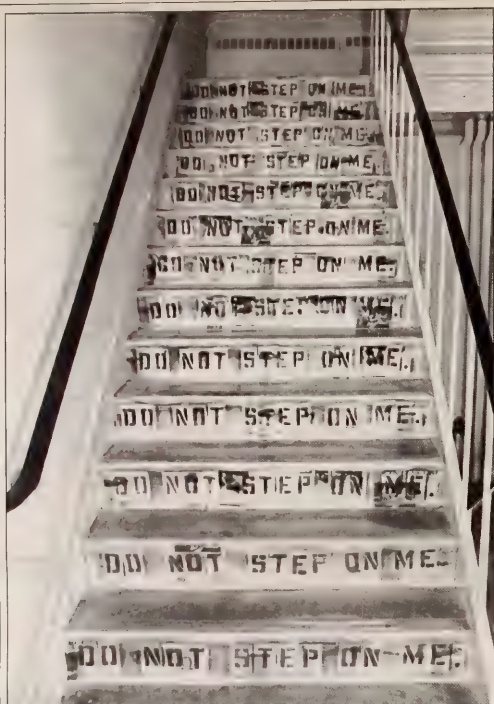 DO NOT STEP ON ME.
DO NOT STEP ON ME.
DO NOT STEP ON ME.
DO NOT STEP ON ME.
DO NOT STEP ON ME.
DO NOT STEP ON ME.
DO NOT STEP ON ME.
DO NOT STEP ON ME.
DO NOT STEP ON ME.
DO NOT STEP ON ME.
DO NOT STEP ON ME.
DO NOT STEP ON ME.
DO NOT STEP ON ME.